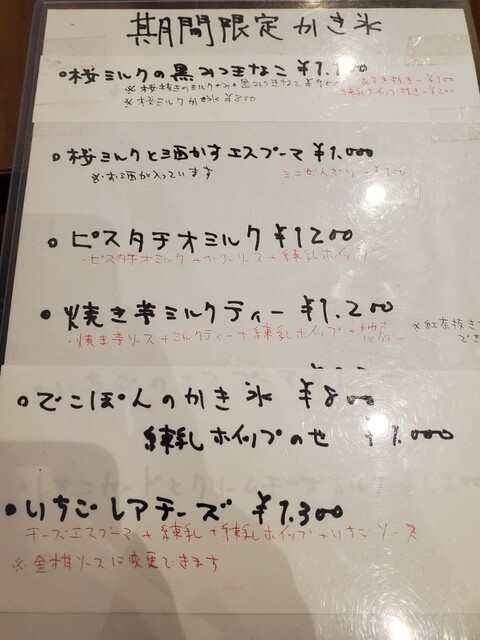 期間限定かき氷
・桜ミルクの黒みつきなこ ¥1.100
※桜抜きのミルクのみ黒みつきなこ
※桜ミルクかき氷¥800
練乳ホイップ抜き-¥200
・桜ミルクと酒かすエスプーマ ¥1.000
※お酒が入っています
・ピスタチオミルク ¥1200
・ピスタチオミルク+ベリーソース+練乳ホイップ
・焼き芋ミルクティー ¥1.200
・焼き芋ソース+ミルクティー+練乳ホイップ+
※紅茶抜き
でき
・でこぽんのかき氷 ¥800
練乳ホイップのせ ¥1.000
・いちごレアチーズ ¥1.300
チーズエスプーマ+練乳+練乳ホイップ+いちごソース
※金柑ソースに変更できます